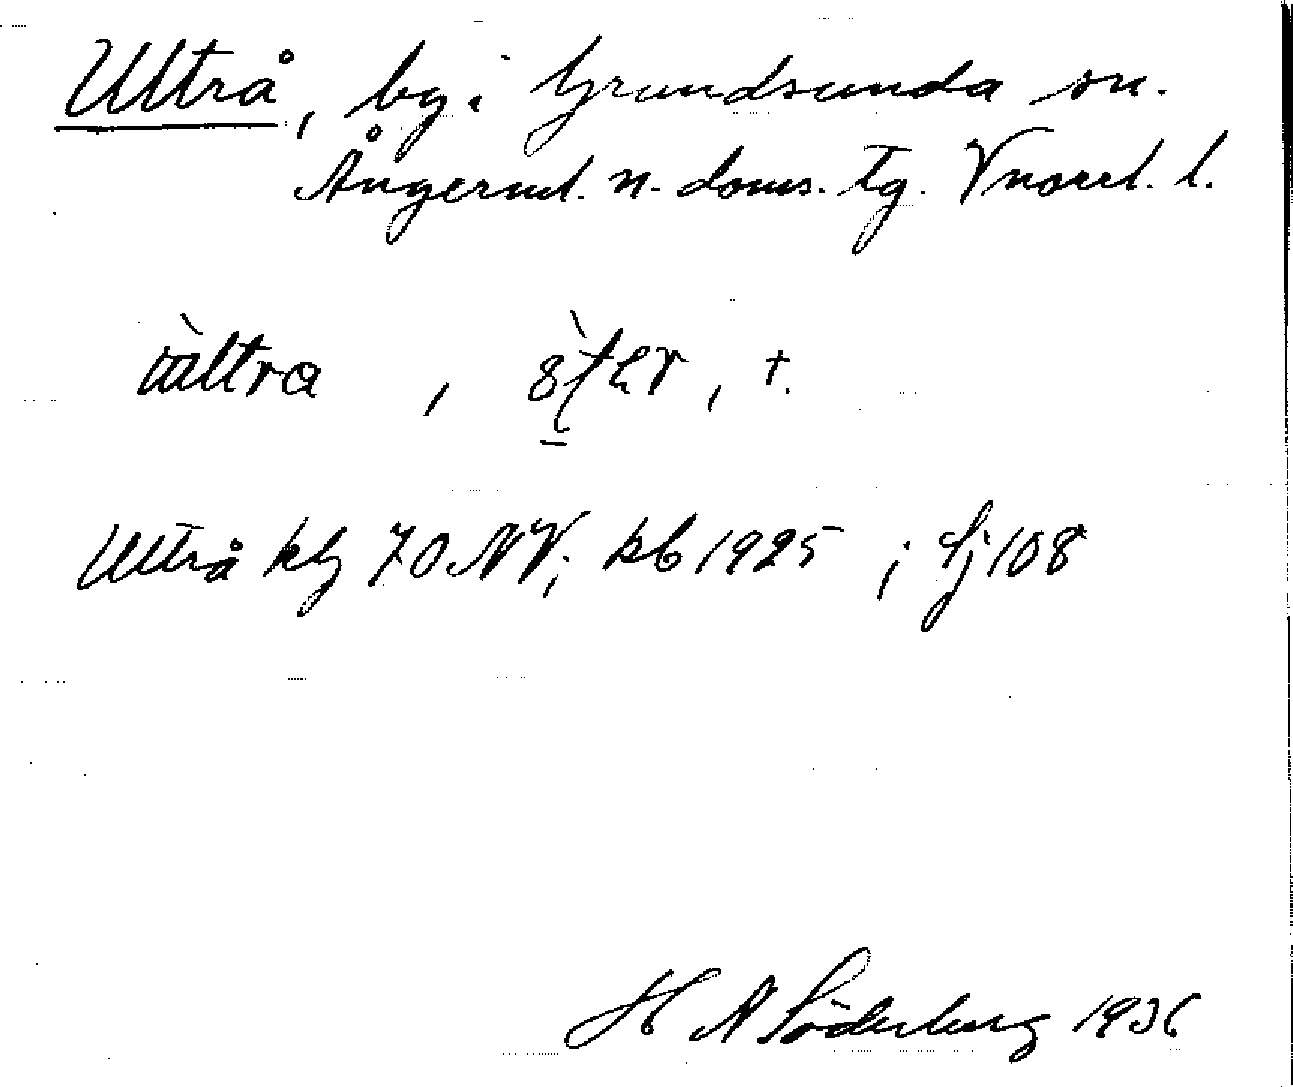 Ultrå, by i Grundsunda sn.
Ångerml. n. doms. tg. Vnorrl. l.
, +.
Ultrå kbg 70 NV; kb 1925 ; Sj 108
H A Söderberg 1936